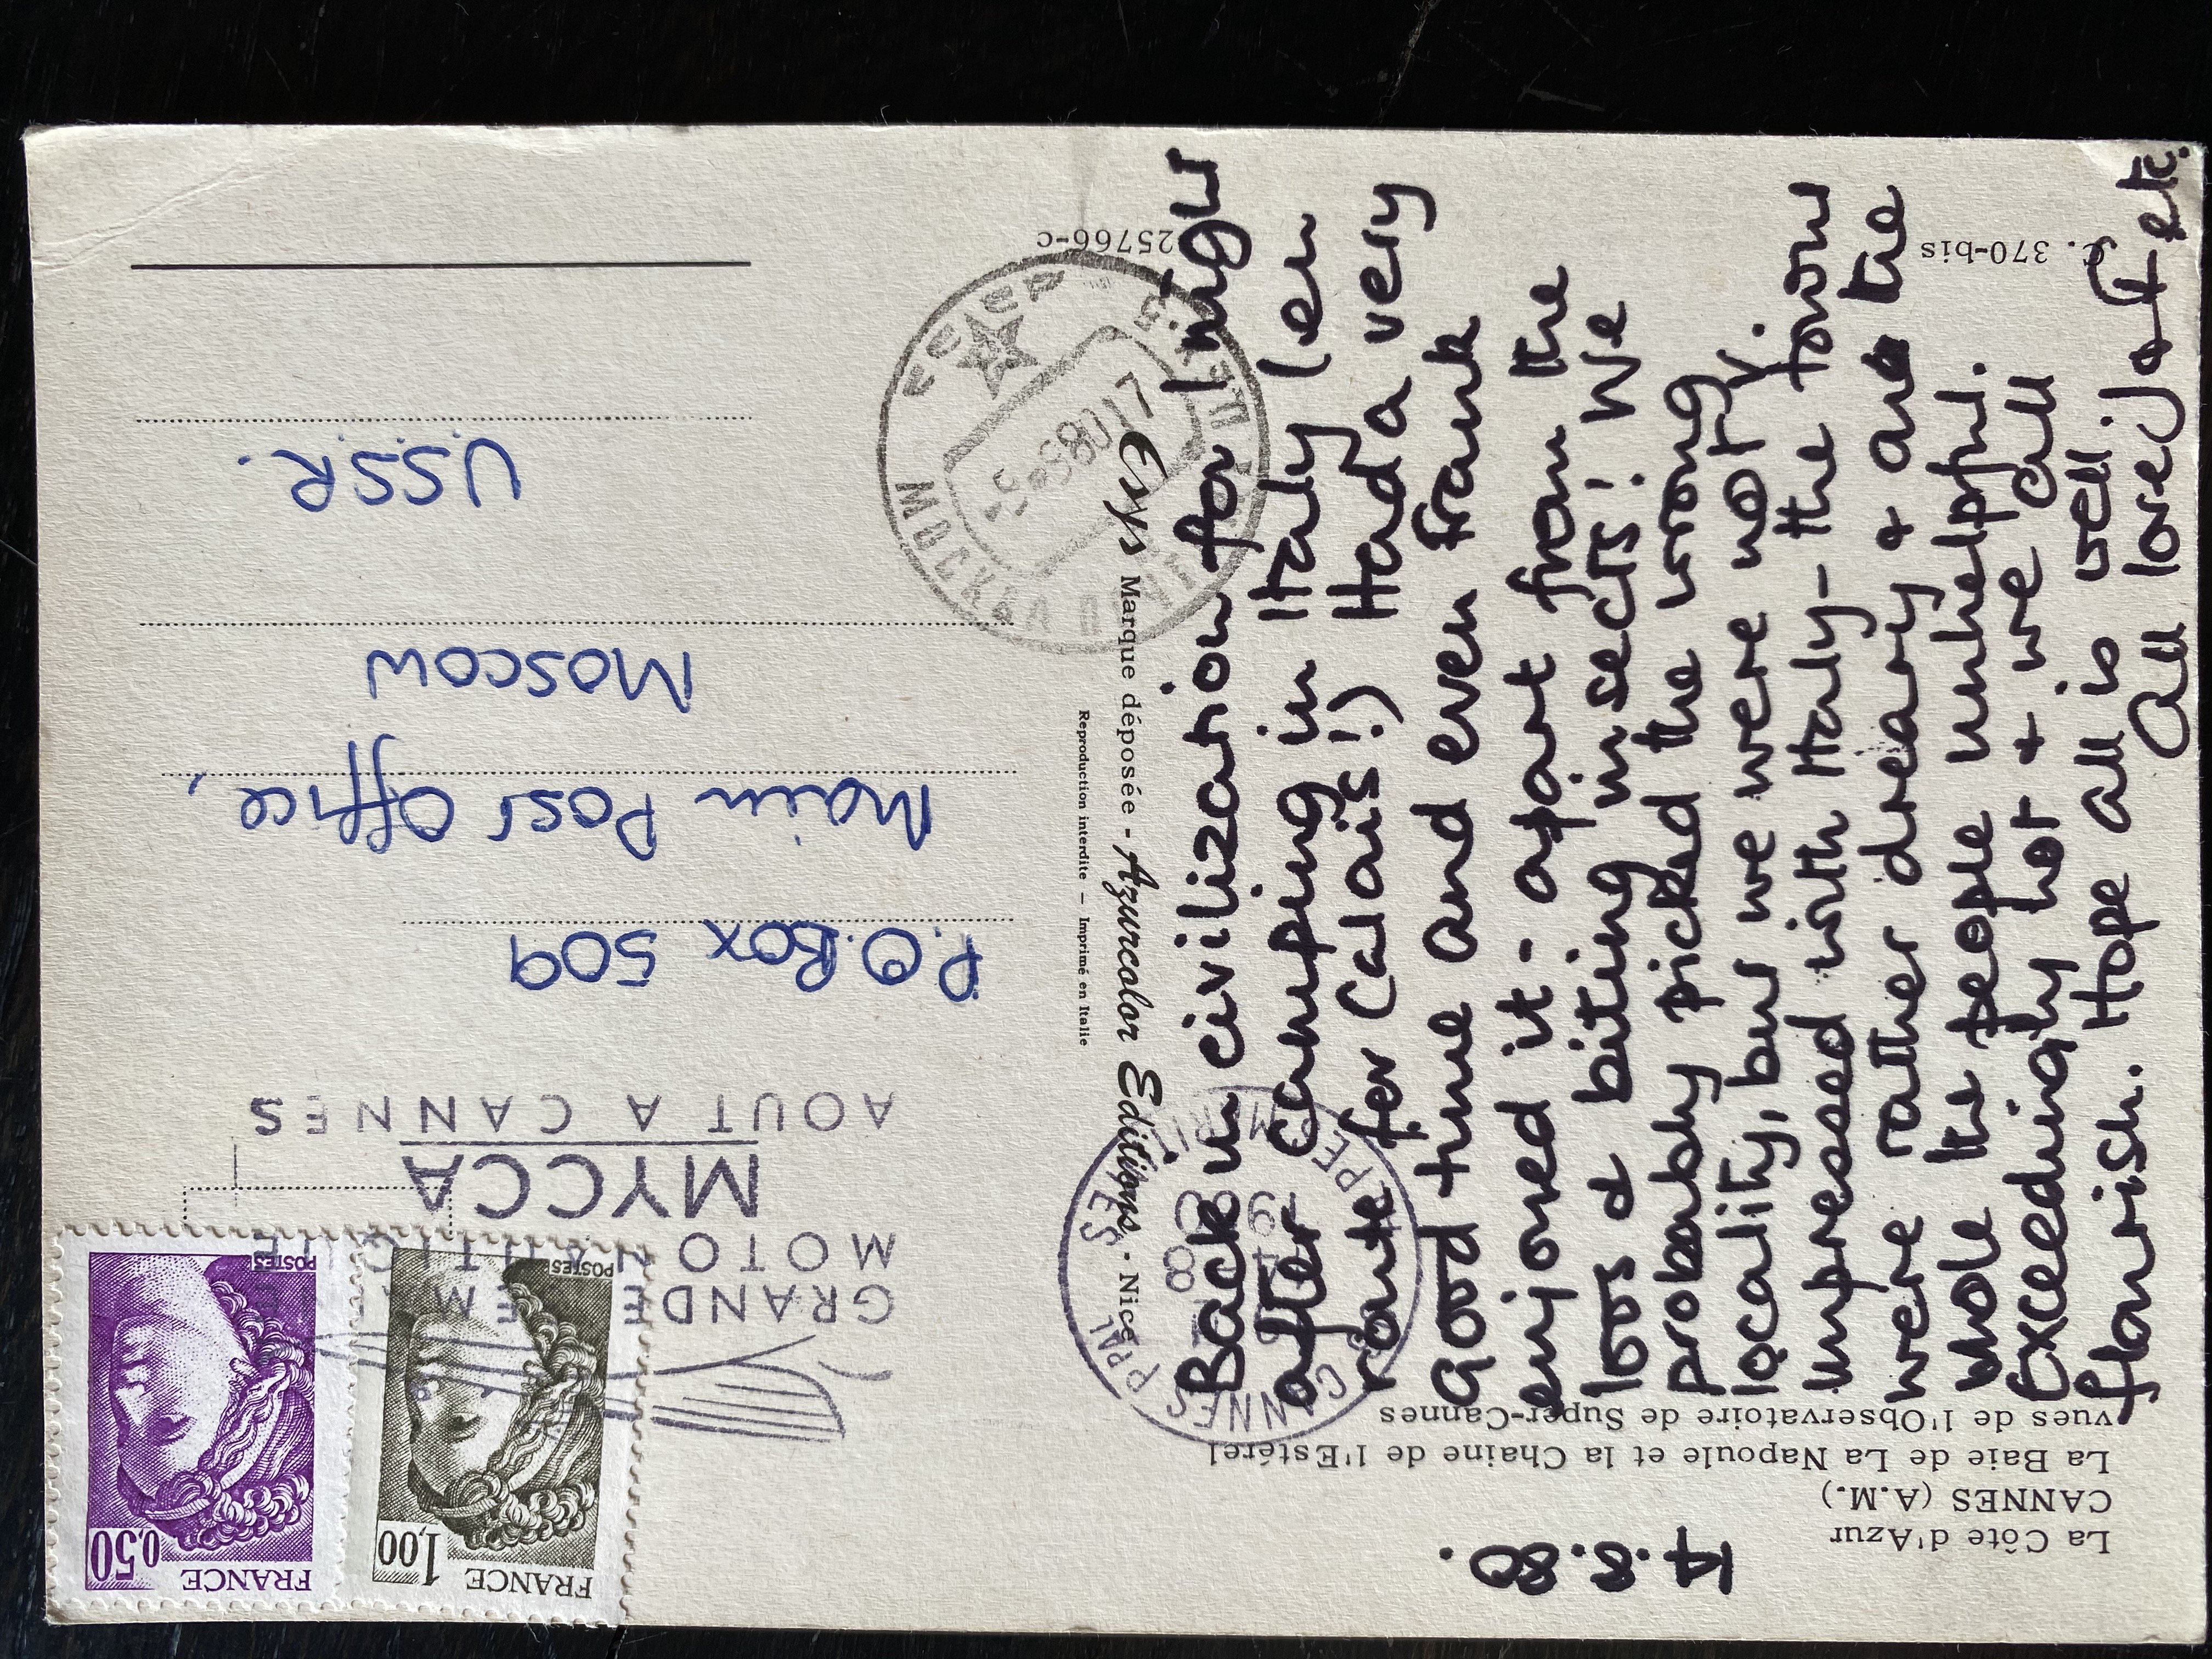 La Côte d'Azur
CANNES (A.M.)
La Baie de La Napoule et la Chaine de l'Estérel
vues de l'Observatoire de Super-Cannes
C. 370-bis
25766-c
14.8.80.
Back in civilization for 1 night
after camping in Italy (en
route for Calais!) Had a very
good time and even Frank
enjoyed it - apart from the
lots of biting insects! We
probably picked the wrong
locality, but we were not v.
impressed with Italy - the towns
were rather dreary & and the
whole the people unhelpful.
Exceedingly hot & we all
flourish. Hope all is well.
All love, J & F etc.
Esys Marque déposée - Azurcolor Editions - Nice
Reproduction interdite — Imprimé en Italie
FRANCE
0,50
POSTES
FRANCE
1,00
POSTES
GRANDE SEMAINE
MOTO NAUTIQUE
MYCA
AOUT A CANNES
CANNES PPAL
ALPES MARIT
CCCP
МОСКВА
5-9 80 17
P.O. Box 509
Main Post Office,
Moscow
U.S.S.R.